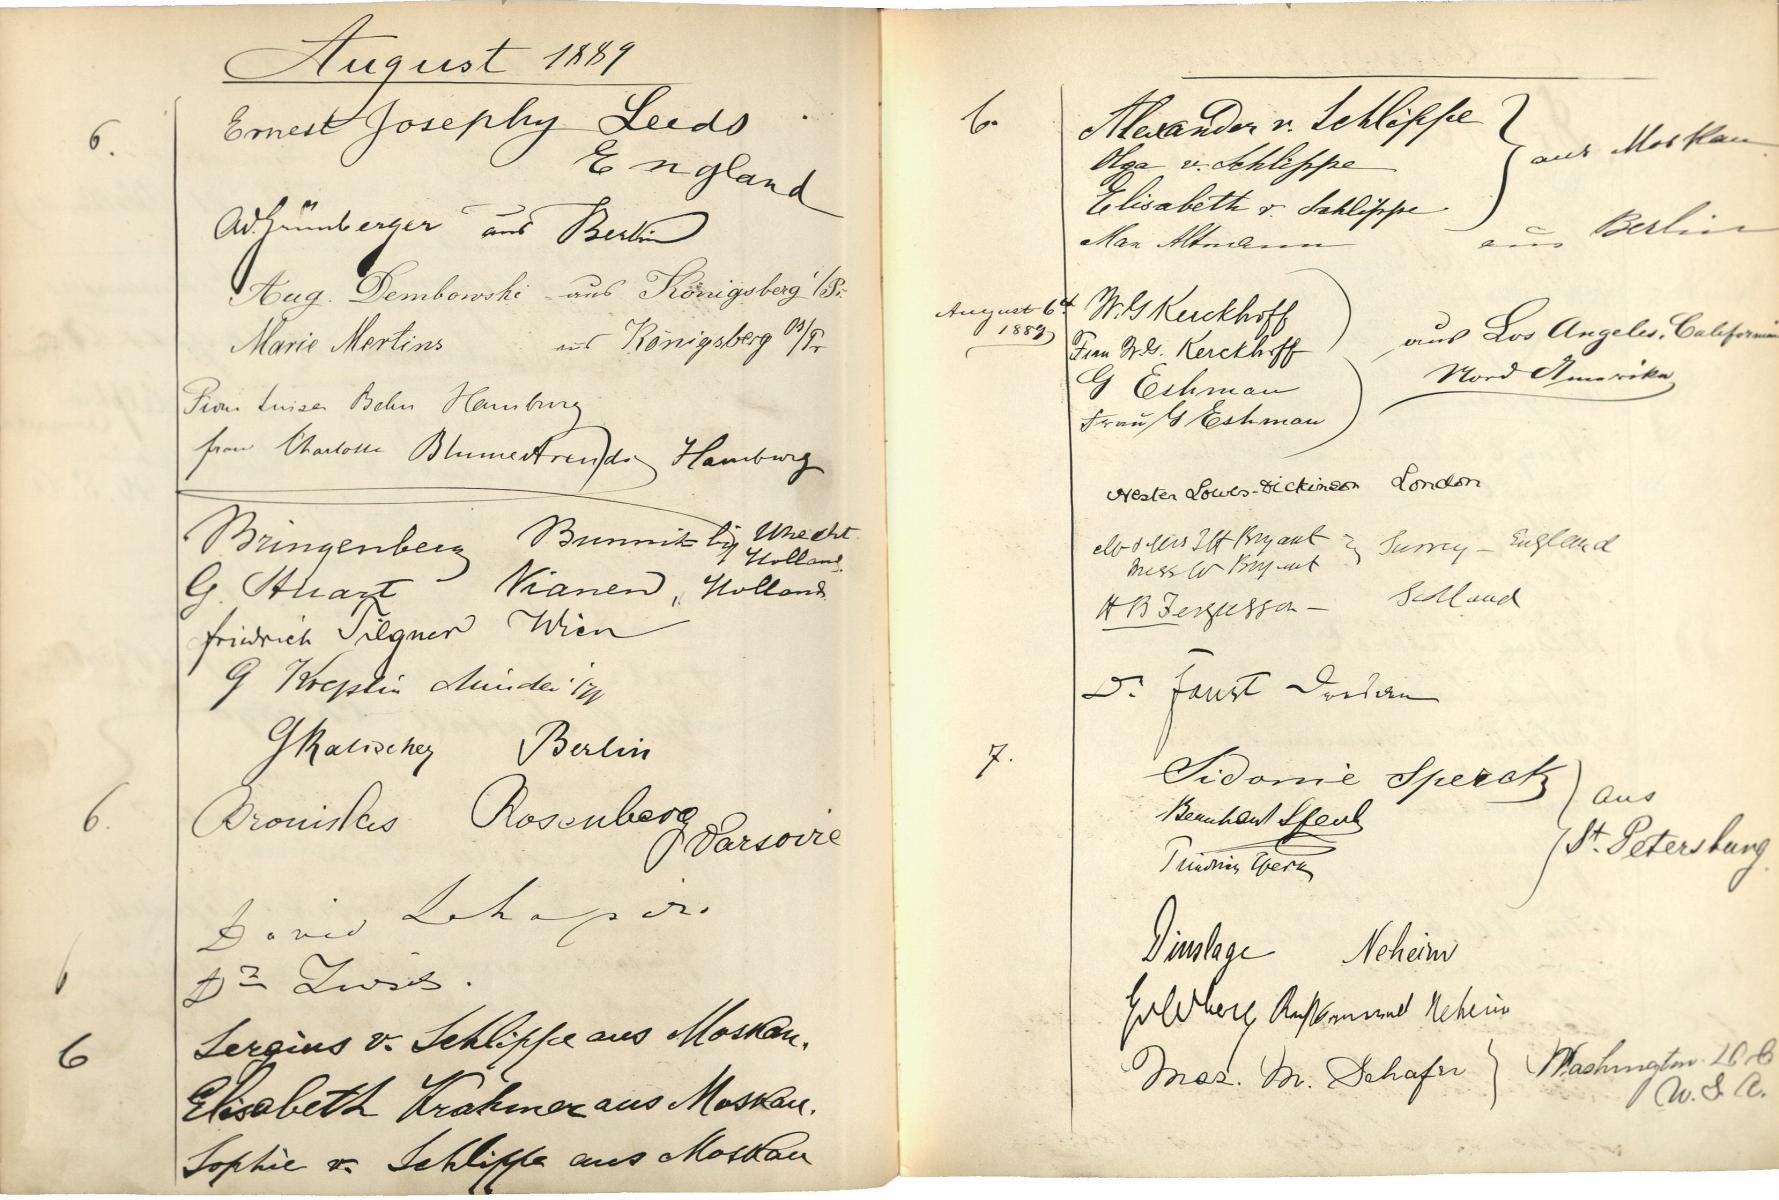 August 1889
6. Ernest Josephy Leeds
England
Ad. Grünberger aus Berlin
Aug. Dembowski aus Königsberg i/Pr.
Marie Mertins aus Königsberg i/Pr
Frau Luise Behn Hamburg
frau Charlotte Hamburg
Bringenberg Bunnik bij Utrecht
Holland.
G. Stuart Vianen, Holland
friedrich Tilgner Wien
G Kreplin Minden
G Kalischer Berlin
6. Bronislas Rosenberg
Varsovie
David Schapiro
6 Dr
6 Sergius v. Schlippe aus Moskau.
Elisabeth Krahmer aus Moskau.
Sophie v. Schlippe aus Moskau
6. Alexander v. Schlippe
Olga v. Schlippe aus Moskau
Elisabeth v. Schlippe
Max Altmann aus Berlin
August 6th W. G Kerckhoff
1889
Frau W.G. Kerckhoff aus Los Angeles, California
G Eshman Nord Amerika
Frau G Eshman
Hester Lowes-Dickinson London
Mr & Mrs Bryant Surrey - England
Miss W Bryant
H B Fergusson - Scotland
Dr. Faust Dresden
7. Sidonie Sperck
Bernhard Sperck aus
Friedrich Sperck St. Petersburg
Dinslage Neheim
Goldberg Neheim
Mrs. M. Schafer Washington D.C.
U.S.A.